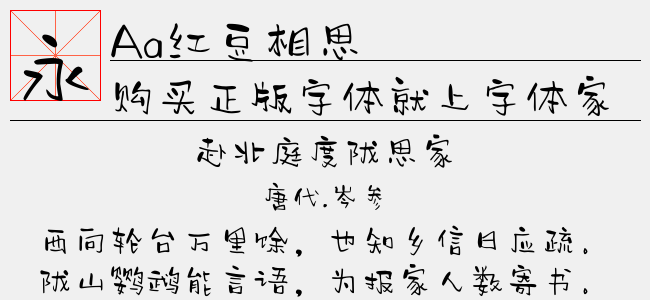 永
Aa红豆相思
购买正版字体就上字体家
赴北庭度陇思家
唐代.岑参
西向轮台万里馀，也知乡信日应疏.
陇山鹦鹉能言语，为报家人数寄书.